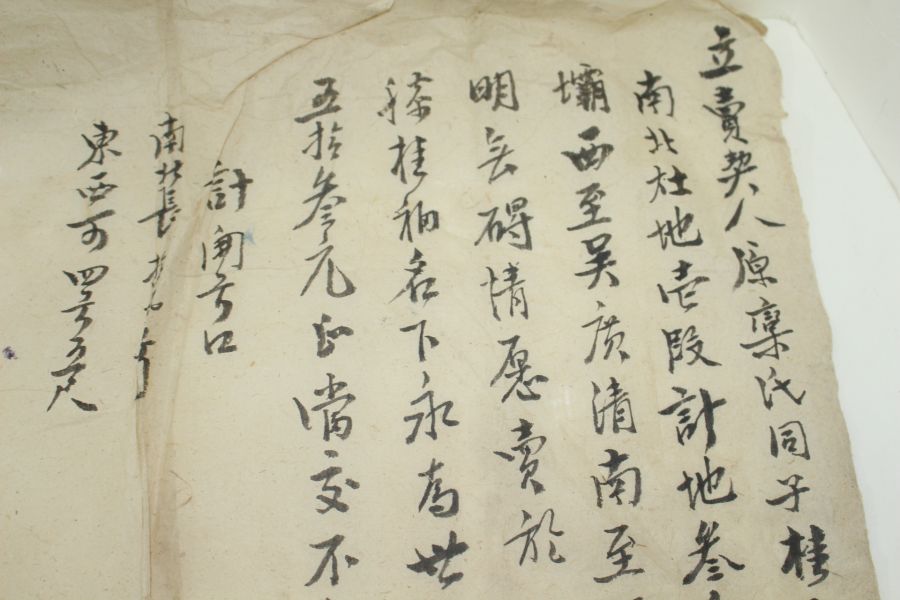 立賣契人原稟氏同子桂
南北灶地壱段計地叁
壩西至吴广清南至
明去碍情愿賣於
桂初名下永為世
五拾叁元正當交不
計開弓口
南北長
東西可四弓五尺